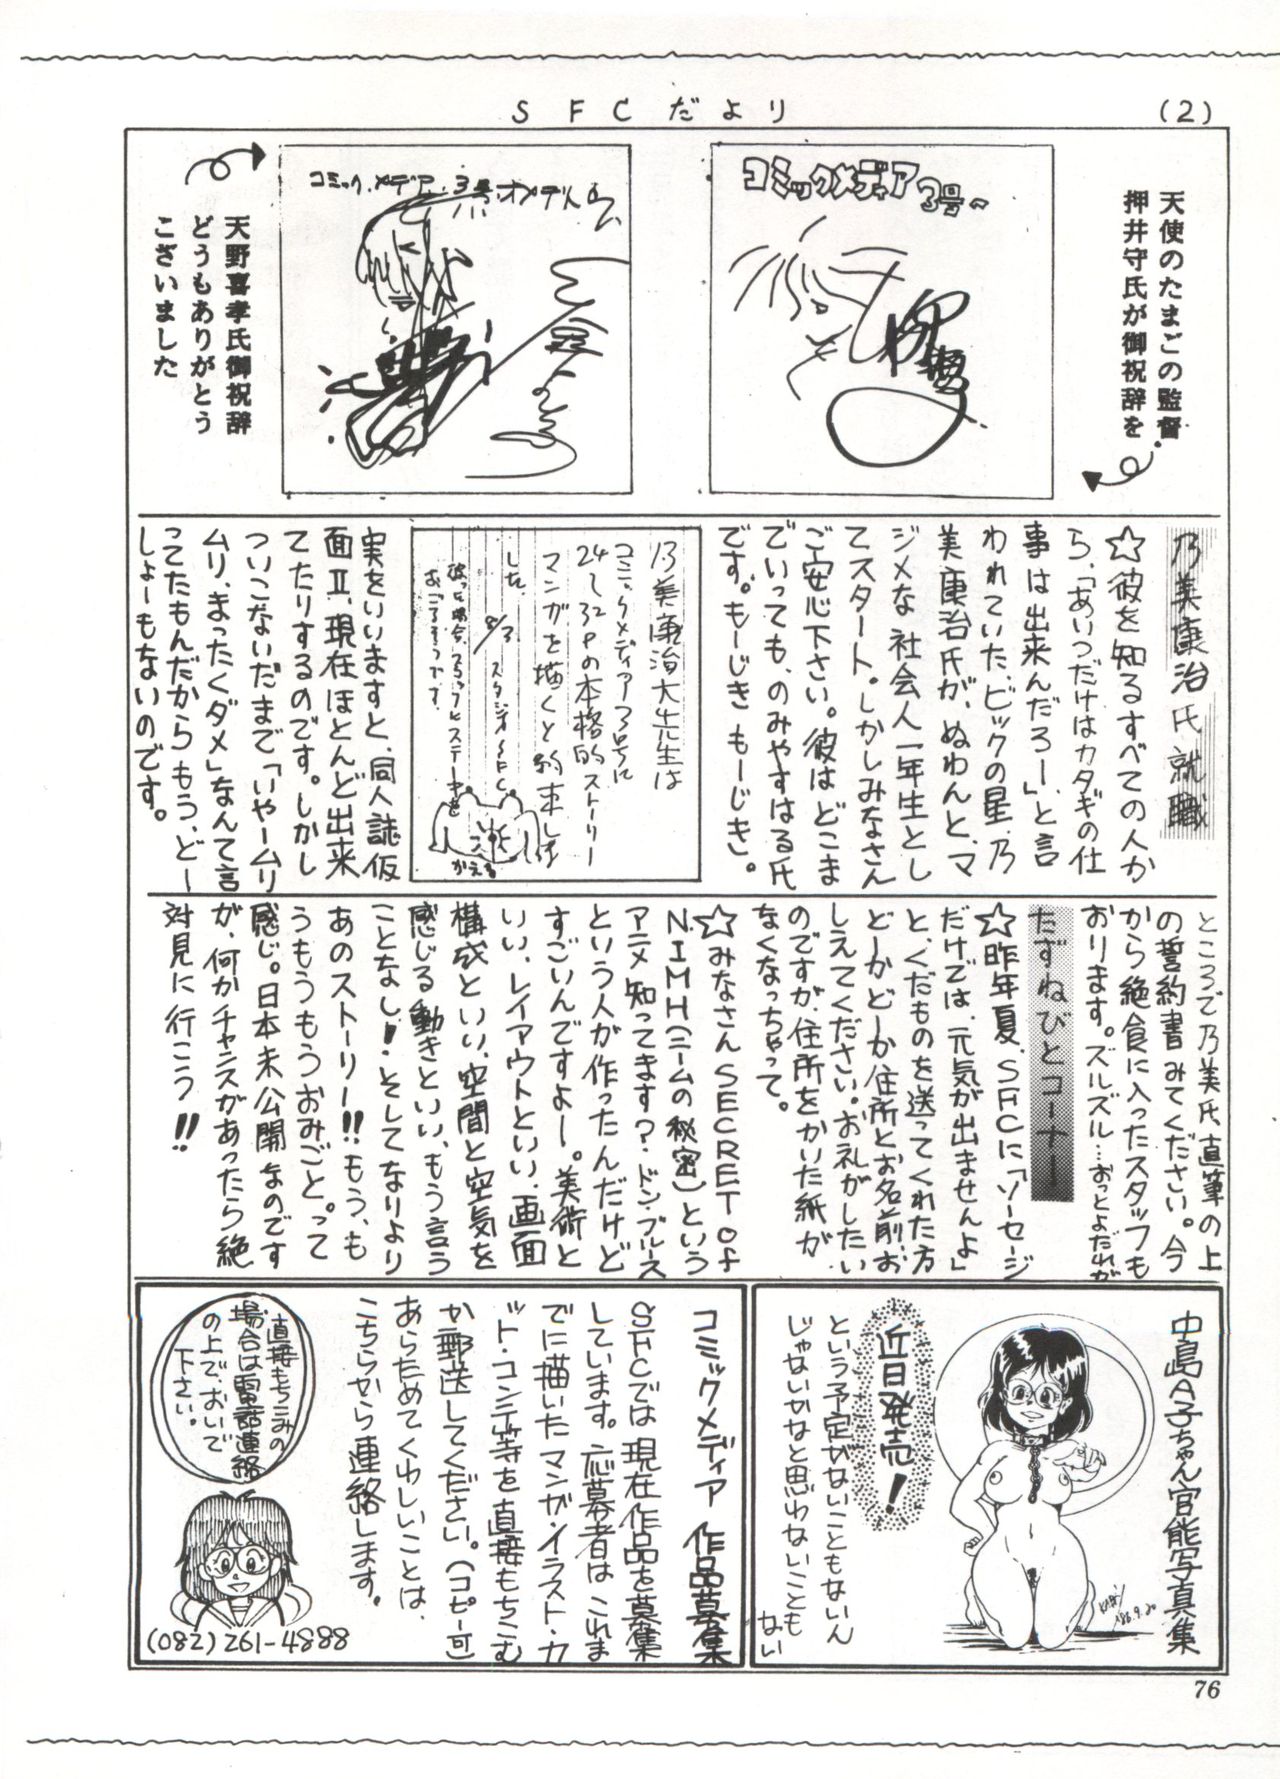 SFCだより
(2)
天使のたまごの監督
押井守氏が御祝辞を
コミックメディア3号~
コミック.メデア.3号.オメデトウ
天野喜孝氏御祝辞
どうもありがとう
こざいました
乃美康治氏就職
☆彼を知るすべての人か
ら、「あいつだけはカタギの仕
事は出来んだろー」と言
われていた、ビックの星、乃
美康治氏が、ぬわんと、マ
ジメな社会人一年生とし
てスタート。しかしみなさん
ご安心下さい。彼はどこま
でいっても、のみやすはる氏
です。もーじき もーじき。
乃美康治大先生は
コミックメディア3号に
24〜32Pの本格的ストーリー
マンガを描くと約束しま
した。
8/3 スタジオSFC
破った場合、スタッフにステーキを
おごるそうです。
かえる
実をいいますと、同人誌仮
面Ⅱ、現在ほとんど出来
てたりするのです。しかし
ついこないだまで「いやームリ
ムリ、まったくダメ」なんて言
ってたもんだからもう、どー
しょーもないのです。
ところで乃美氏直筆の上
の誓約書みてください。今
から絶食に入ったスタッフも
おります。ズルズル…おっとよだれが
たずねびとコーナー
☆昨年夏、SFCに「ソーセージ
だけでは、元気が出ませんよ」
と、くだものを送ってくれた方
どーかどーか住所とお名前、お
しえてください。お礼がしたい
のですが、住所をかいた紙が
なくなっちゃって。
☆みなさん SECRET of
N.I.M.H(ニームの秘密)という
アニメ知ってます?ドン・ブルース
という人が作ったんだけど
すごいんですよー。美術と
いい、レイアウトといい、画面
構成といい、空間と空気を
感じる動きといい、もう言う
ことなし!そしてなりより
あのストーリー!!もう、も
うもうもうおみごと。って
感じ。日本未公開なのです
が、何かチャンスがあったら絶
対見に行こう!!
中島A子ちゃん官能写真集
KAEY
'86.9.20
近日発売!
という予定がないこともないん
じゃないかなと思わないことも
ない
コミックメディア 作品募集
SFCでは現在作品を募集
しています。応募者はこれま
でに描いたマンガ・イラスト・カ
ット・コンテ等を直接もちこむ
か郵送してください。(コピー可)
あらためてくわしいことは、
こちらから連絡します。
直接もちこみの
場合は電話連絡
の上で、おいで
下さい。
(082)261-4888
76